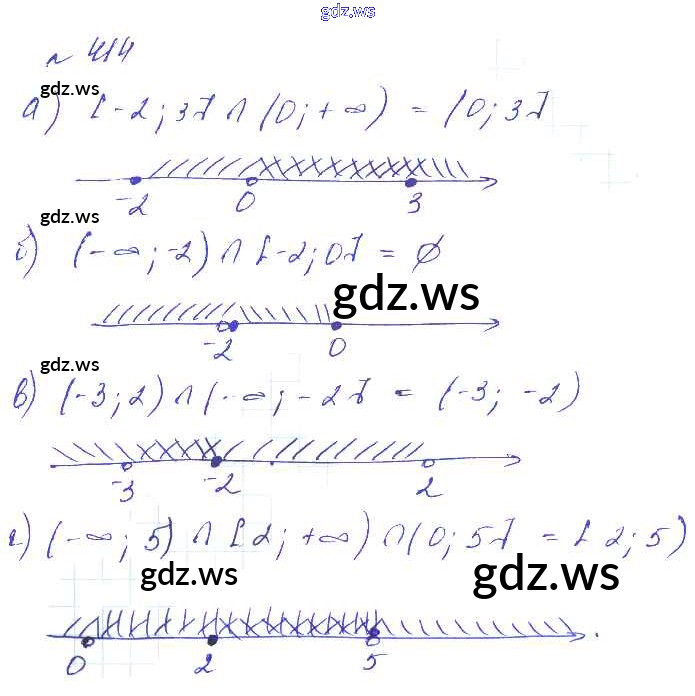 gdz.ws
№ 414
gdz.ws
а) [-2; 3] ∩ (0; +∞) = (0; 3]
-2 0 3
gdz.ws
б) (-∞; -2) ∩ [-2; 0] = ∅
gdz.ws
-2 0
gdz.ws
в) (-3; 2) ∩ (-∞; -2] = (-3; -2)
-3 -2 2
г) (-∞; 5) ∩ [2; +∞) ∩ (0; 5] = [2; 5)
gdz.ws gdz.ws
0 2 5